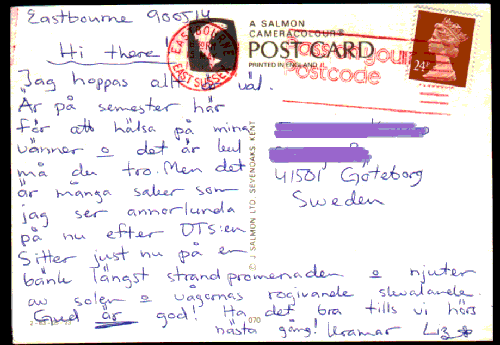 Eastbourne 900514
Hi there!
Jag hoppas allt är väl.
Är på semester här
för att hälsa på mina
vänner o det är kul
må du tro. Men det
är många saker som
jag ser annorlunda
på nu efter DTS:en
Sitter just nu på en
bänk längst strandpromenaden o njuter
av solen o vågornas rogivande skvalande.
Gud är god! Ha det bra tills vi hörs
nästa gång! Kramar Liz
A SALMON
CAMERACOLOUR®
POST CARD
PRINTED IN ENGLAND
EASTBOURNE
EAST SUSSEX
your
Postcode
24
41501 Göteborg
Sweden
© J. SALMON LTD. SEVENOAKS KENT
070